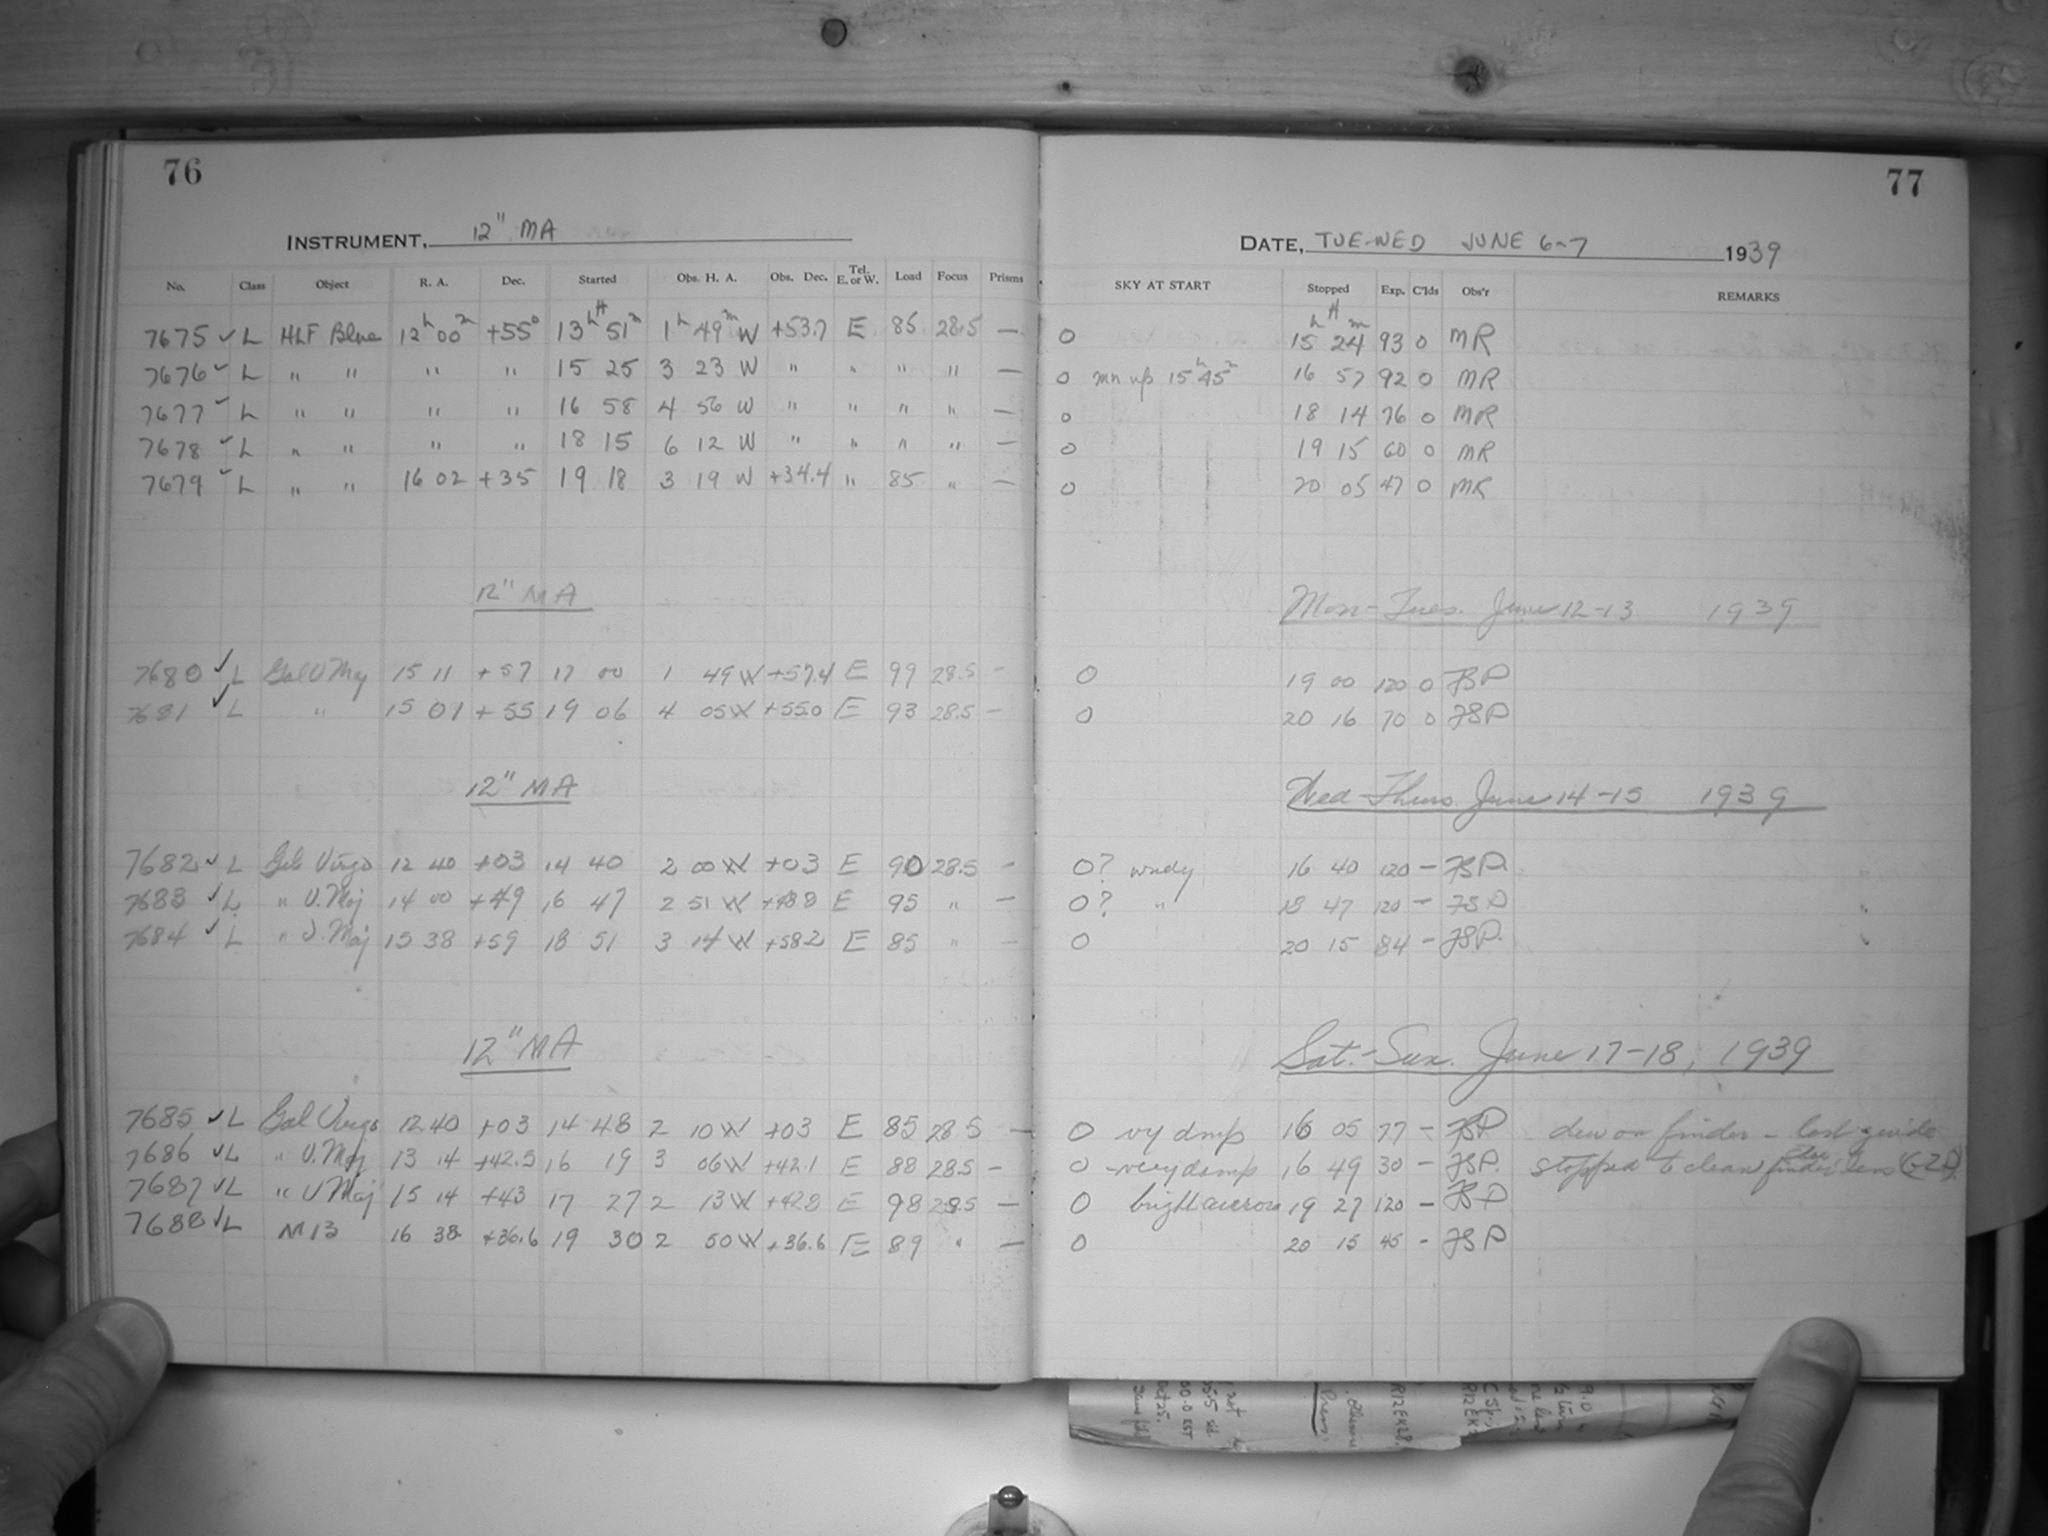 76
INSTRUMENT, 12" MA
No. Class Object R. A. Dec. Started Obs. H. A. Obs. Dec. Tel. E. or W. Load Focus Prisms
7675 ✓ L HLF Blue 12h 00m +55° 13h 51m 1h 49m W +53.7 E 85 28.5 —
7676 ✓ L " " " " 15 25 3 23 W " " " " —
7677 ✓ L " " " " 16 58 4 56 W " " " " —
7678 ✓ L " " " " 18 15 6 12 W " " " " —
7679 ✓ L " " 16 02 +35 19 18 3 19 W +34.4 " 85 " —
12" MA
7680 ✓ L Gal U Maj 15 11 +57 17 00 1 49 W +57.4 E 99 28.5 —
7681 ✓ L " 15 01 +55 19 06 4 05 W +55.0 E 93 28.5 —
12" MA
7682 ✓ L Gal Virgo 12 40 +03 14 40 2 00 W +03 E 90 28.5 —
7683 ✓ L " U. Maj 14 00 +49 16 47 2 51 W +48.8 E 95 " —
7684 ✓ L " U. Maj 15 38 +59 18 51 3 14 W +58.2 E 85 " —
12" MA
7685 ✓ L Gal Virgo 12 40 +03 14 48 2 10 W +03 E 85 28.5 —
7686 ✓ L " U. Maj 13 14 +42.5 16 19 3 06 W +42.1 E 88 28.5 —
7687 ✓ L " U Maj 15 14 +43 17 27 2 13 W +42.8 E 98 28.5 —
7688 ✓ L M 13 16 38 +36.6 19 30 2 50 W +36.6 E 89 " —
77
DATE, TUE-WED JUNE 6-7 1939
SKY AT START Stopped Exp. C'lds Obs'r REMARKS
0 15h 24m 93 0 MR
0 mn up 15h 45m 16 57 92 0 MR
0 18 14 76 0 MR
0 19 15 60 0 MR
0 20 05 47 0 MR
Mon-Tues. June 12-13 1939
0 19 00 120 0 JSP
0 20 16 70 0 JSP
Wed-Thurs June 14-15 1939
0? windy 16 40 120 — JSP.
0? " 18 47 120 — JSP
0 20 15 84 — JSP.
Sat.-Sun. June 17-18, 1939
0 vy dmp 16 05 77 — JSP dew on finder — lost guide
0 -very damp 16 49 30 — JSP. stopped to clean finder lens
0 bright aurora 19 27 120 — JSP
0 20 15 45 - JSP